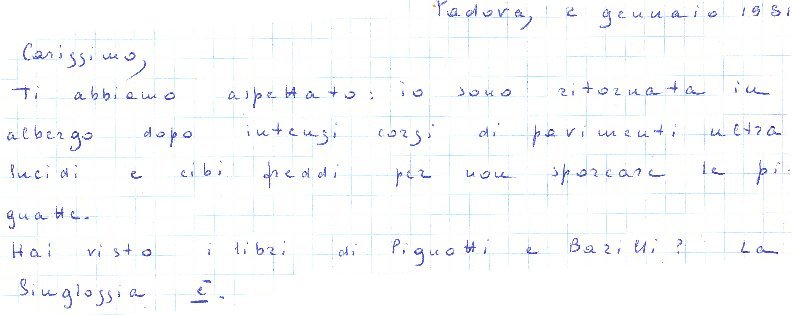 Padova, 2 gennaio 1981
Carissimo,
Ti abbiamo aspettato: io sono ritornata in
albergo dopo intensi corsi di pavimenti ultra
lucidi e cibi freddi per non sporcare le pi-
gnatte.
Hai visto i libri di Pignotti e Barilli? La
Singlossia è.